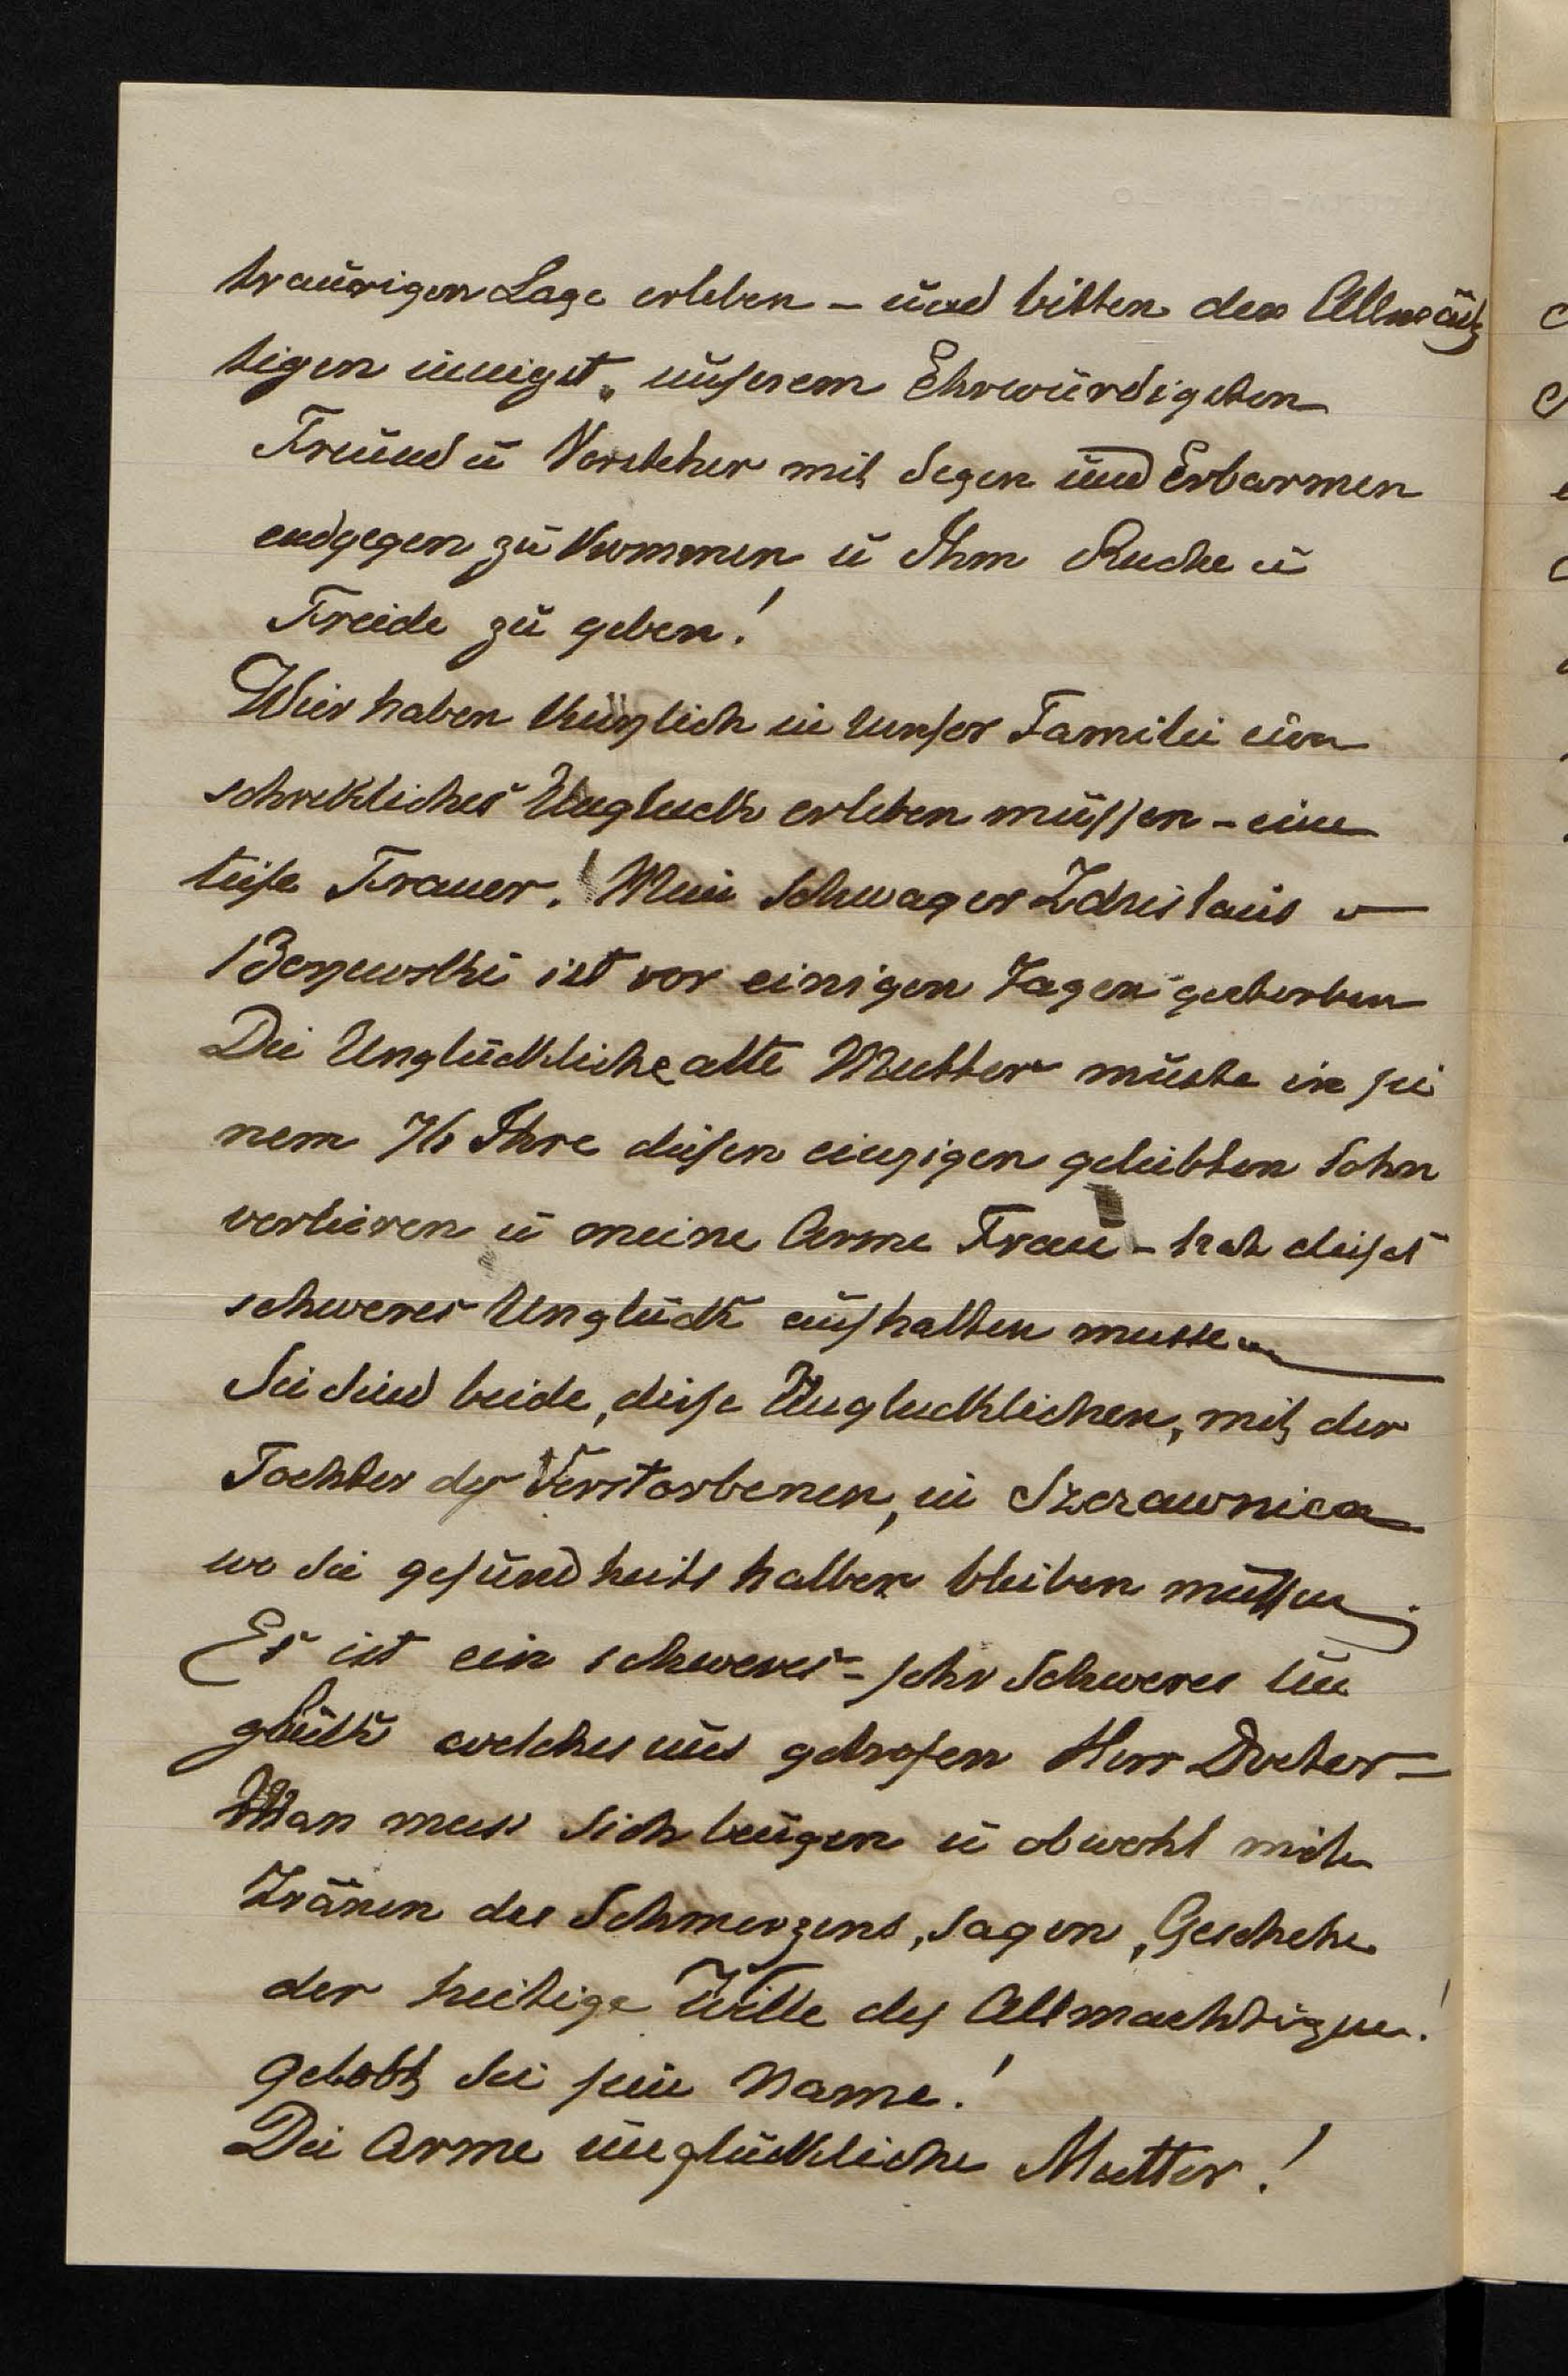 traurigen Lage erleben – und bitten den Allmäch
tigen innigst, unserem Ehrwürdigsten
Freund u Vorsteher mit Segen und Erbarmen
endgegen zu kommen u Ihm Ruche u
Freide zu geben!
Wier haben kürzlich in unser Familie ein
schrekliches Ungluck erleben müssen – eine
tiefe Trauer. Mein Schwager Zdzislaus v
ist vor einigen Tagen gestorben
Die Unglückliche alte Mutter müste in sei
nem 76 Ihre diesen einzigen geliebten Sohn
verlieren u meine Arme Frau – hat dieses
schweres Unglück aushalten mussen
Sie sind beide, diese Unglucklichen, mit der
Tochter des Verstorbenen, in Szczawnica
wo sie gesundheits halber bleiben müssen.
Es ist ein schweres – sehr schweres Un
glück welches uns getrofen Herr Doctor –
Man muss sich beugen u obwohl mit
Tränen des Schmerzens, sagen, Geschehe
der heilige Wille des Allmachtigen!
gelobt sei sein Name!
Die Arme unglückliche Mutter!